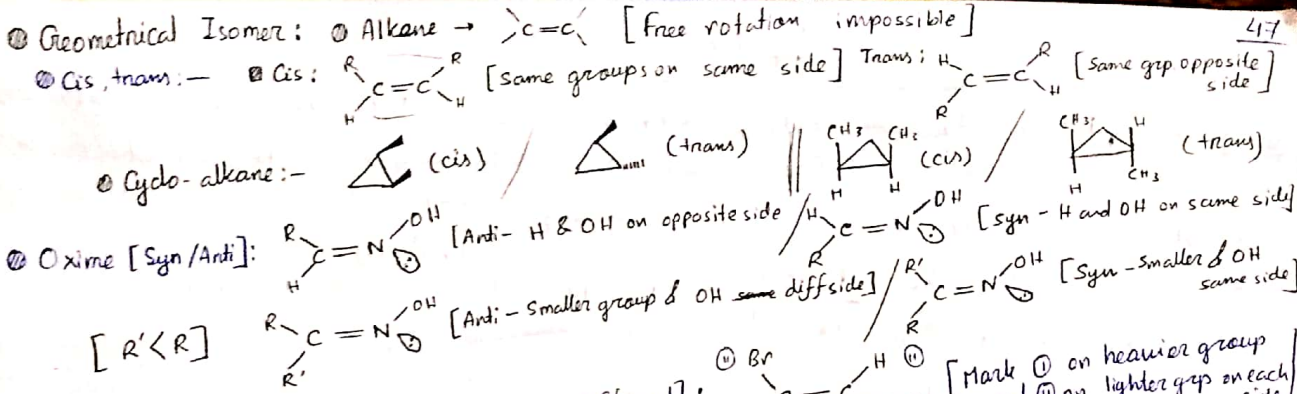 Geometrical Isomer: Alkane → >C=C< [Free rotation impossible] 47
Cis, trans:— Cis: R H C=C R H [Same groups on same side] Trans: H R C=C R H [Same grp opposite side]
Cyclo-alkane:— (cis) / (trans) || CH3 CH3 H H (cis) / CH3 H H CH3 (trans)
Oxime [Syn/Anti]: R H C=N OH [Anti- H & OH on opposite side / H R C=N OH [Syn - H and OH on same side]
[R'<R] R R' C=N OH [Anti - Smaller group & OH same diff side] / R' R C=N OH [Syn - Smaller & OH same side]
II Br H II [Mark I on heavier group
II on lighter grp on each